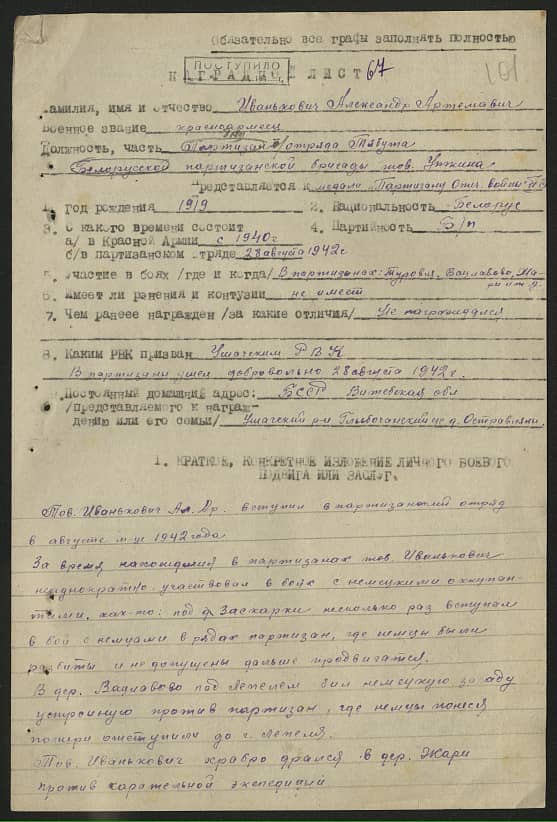 Обязательно все графы заполнять полностью
ПОСТУПИЛО
НАГРАДНОЙ ЛИСТ 67
101
Фамилия, имя и отчество Иванькович Александр Артемавич
Военное звание красноармеец
Должность, часть Партизан отряда Тябута
Белорусской партизанской бригады тов. Уткина
Представляется к медали „Партизану Отеч. войны" II ст
1. Год рождения 1919 2. Национальность Беларус
3. С какого времени состоит 4. Партийность Б/п
а/ в Красной Армии с 1940 г
б/в партизанском отряде 28 августа 1942 г
5. Участие в боях /где и когда/ В партизанах: Туровля, Вацлавово, Жа-
ри и т.д.
6. Имеет ли ранения и контузии не имеет
7. Чем ранеее награжден /за какие отличия/ Не награждался
8. Каким РВК призван Ушачским РВК
В партизаны ушел добровольно 28 августа 1942 г.
Постоянный домашний адрес: БССР Витебская обл
/представляемого к награж-
дению или его семьи/ Ушачский р-н Глыбочанский с/с д. Остравляни.
1. КРАТКОЕ, КОНКРЕТНОЕ ИЗЛОЖЕНИЕ ЛИЧНОГО БОЕВОГО
ПОДВИГА ИЛИ ЗАСЛУГ.
Тов. Иванькович Ал. Ар. вступил в партизанский отряд
в августе м-це 1942 года
За время нахождения в партизанах тов. Иванькович
неоднократно участвовал в боях с немецкими оккупан-
тами, как-то: под д. Заскарки несколько раз вступал
в бой с немцами в рядах партизан, где немцы были
разбиты и не допущены дальше продвигатся.
В дер. Вацлавово под Лепелем бил немецкую засаду
устроиную против партизан, где немцы понеся
потери отступили до г. Лепеля.
Тов. Иванькович храбро дрался в дер. Жари
против карательной экспедиций